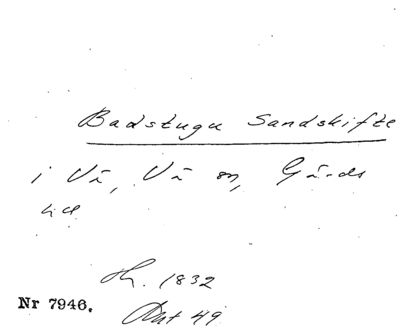 Badstugu Sandskifte
i Vä, Vä sn, Gärds
hd
1832
Nr 7946.
Akt 49